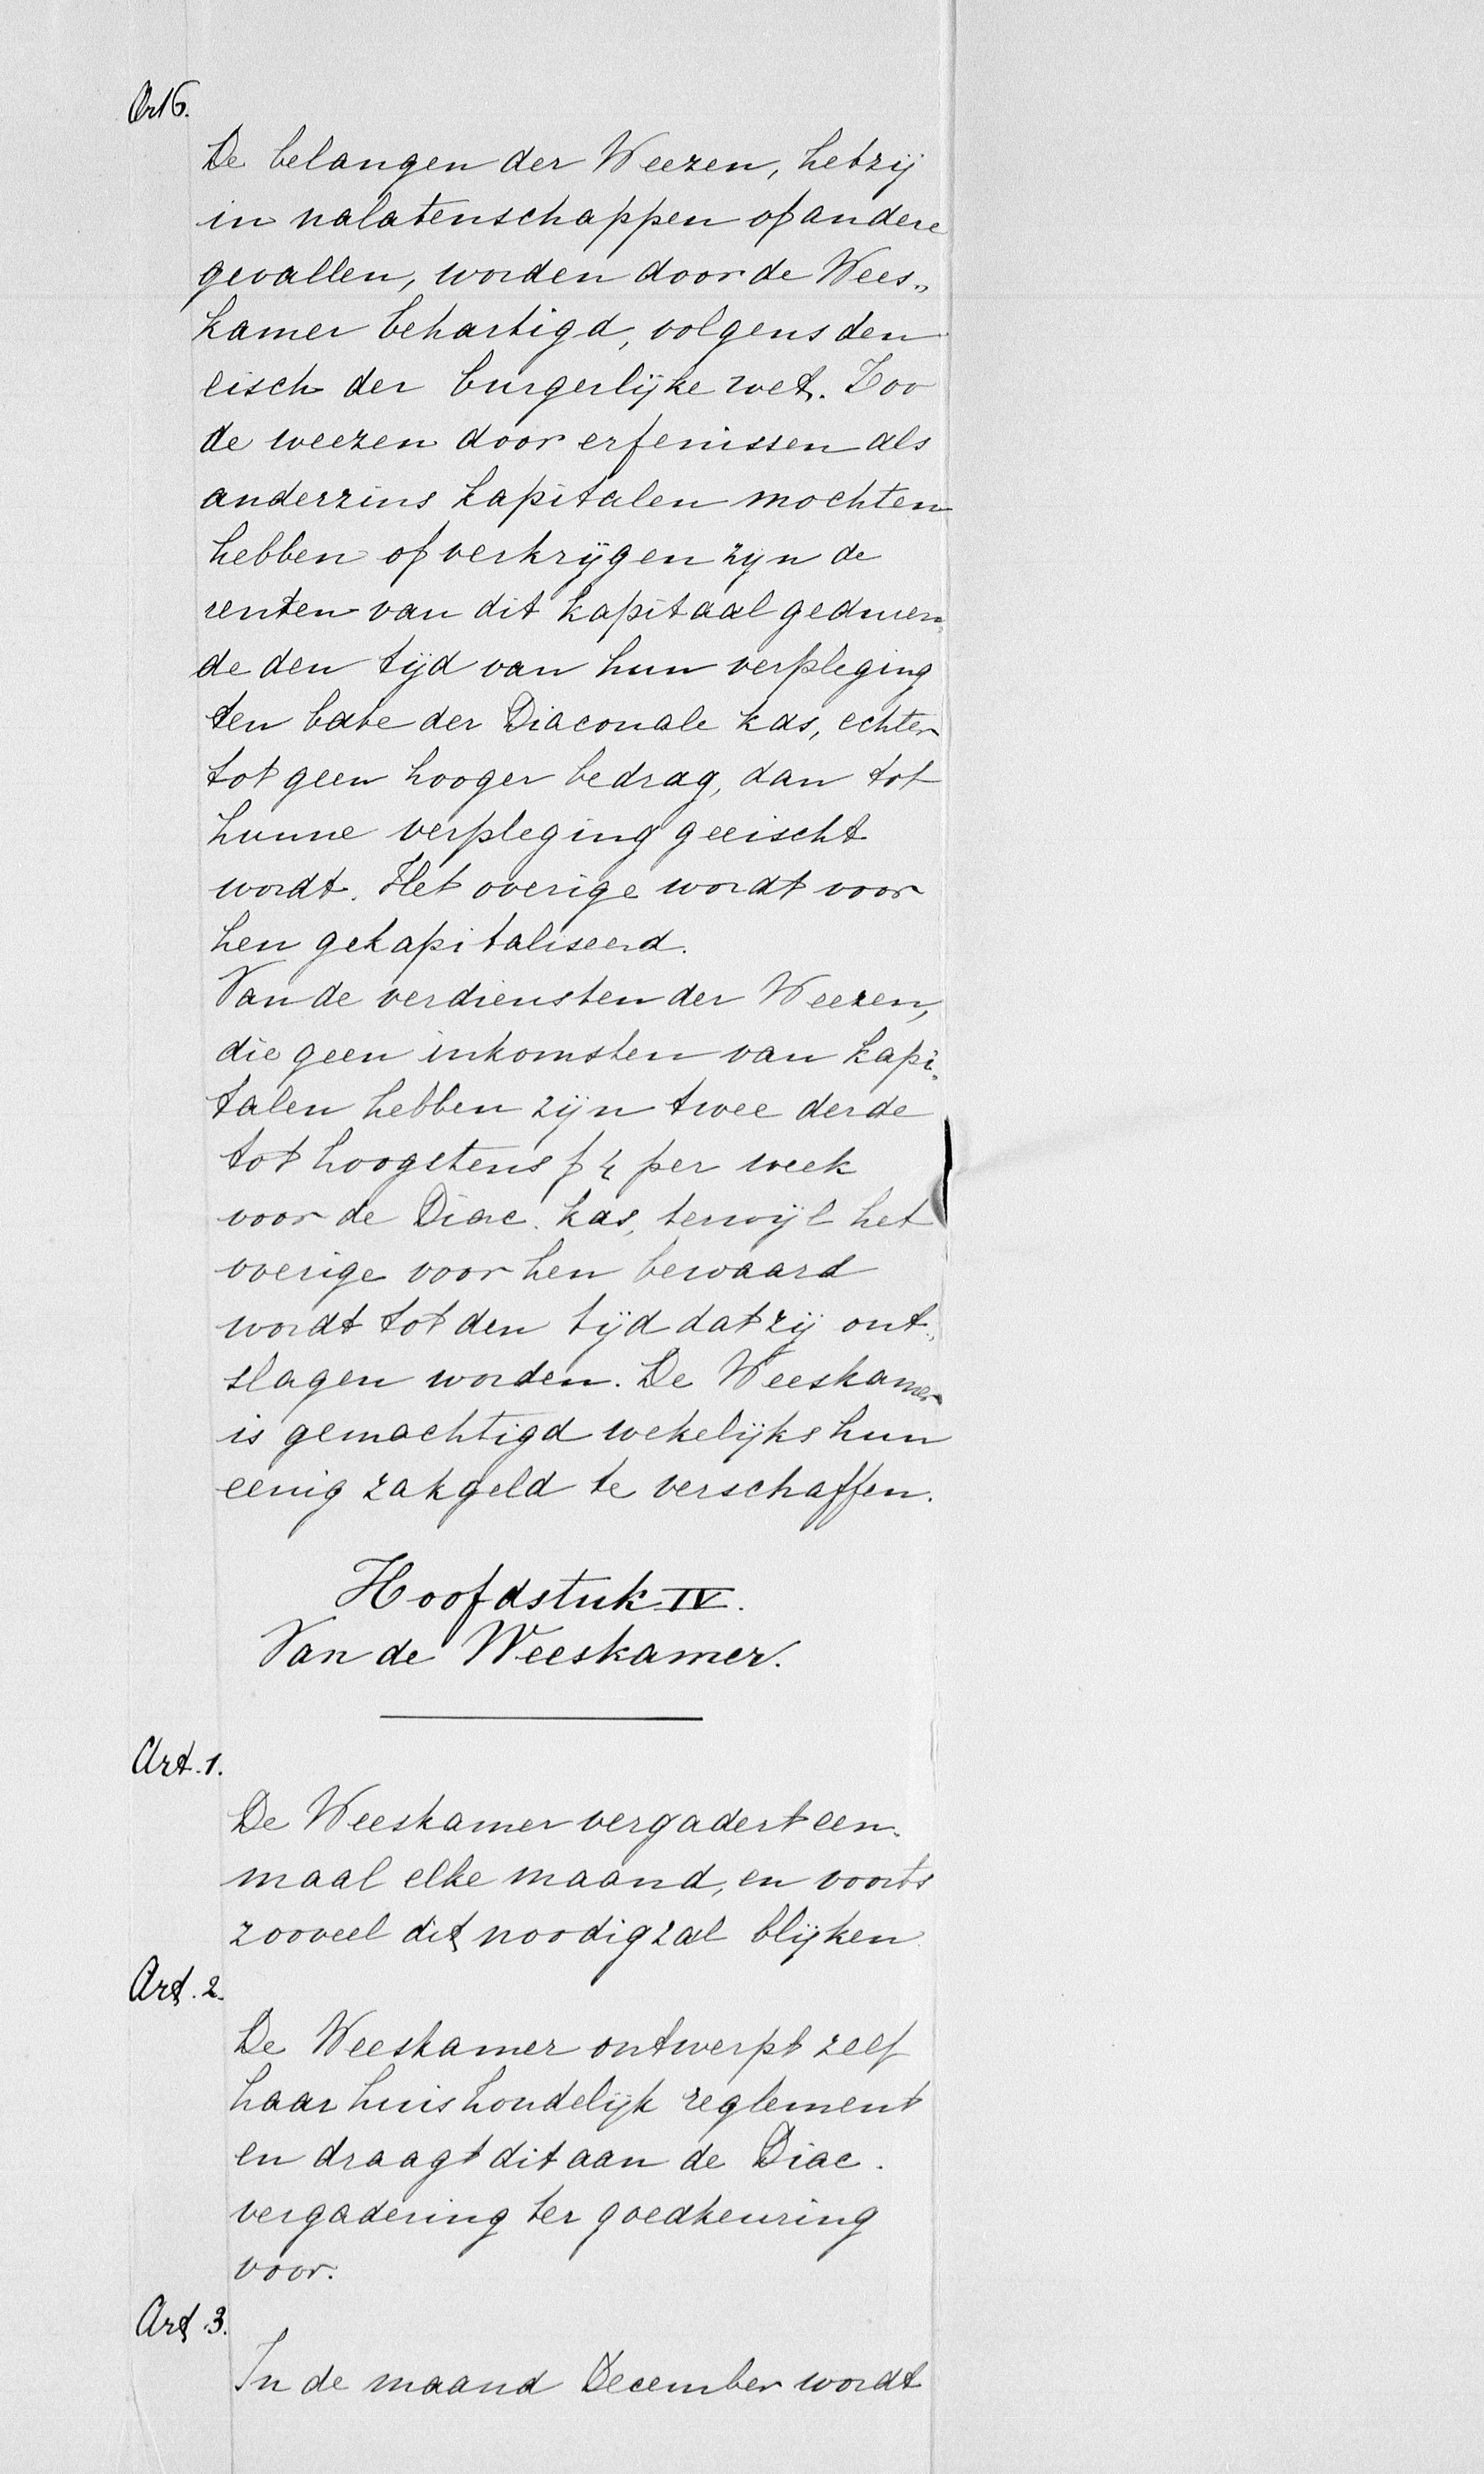 Art 6.
De belangen der Weezen, hetzij
in nalatenschappen of andere
gevallen, worden door de Wees„
kamer behartigd, volgens den
eisch der burgerlijke wet. Zoo
de weezen door erfenissen als
anderzins kapitalen mochten
hebben of verkrijgen zijn de
renten van dit kapitaal geduren„
de den tijd van hun verpleging
ten bate der Diaconale kas, echter
tot geen hooger bedrag, dan tot
hunne verpleging geeischt
wordt. Het overige wordt voor
hen gekapitaliseerd.
Van de verdiensten der Weezen,
die geen inkomsten van kapi„
talen hebben zijn twee derde
tot hoogstens f 4 per week
voor de Diac. kas, terwijl het
overige voor hen bewaard
wordt tot den tijd dat zij ont„
slagen worden. De Weeskamer
is gemachtigd wekelijks hun
eenig zakgeld te verschaffen.
Hoofdstuk IV.
Van de Weeskamer.
Art. 1.
De Weeskamer vergadert een„
maal elke maand, en voorts
zooveel dit noodig zal blijken
Art. 2.
De Weeskamer ontwerpt zelf
haar huishoudelijk reglement
en draagt dit aan de Diac.
vergadering ter goedkeuring
voor.
Art. 3.
In de maand December wordt